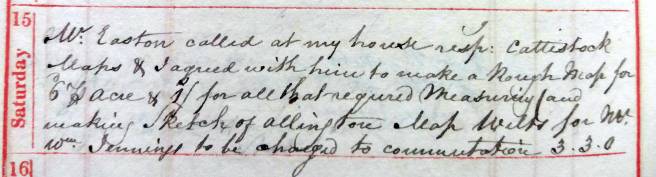 15
Saturday
Mr. Easton called at my house resp: Cattistock
Maps & I agreed with him to make a Rough Map for
acre & 1/ for all that required Measuring (and
making Sketch of allington Map Wilts for Mr.
Wm. Jennings to be charged to commutation 3.3.0
16